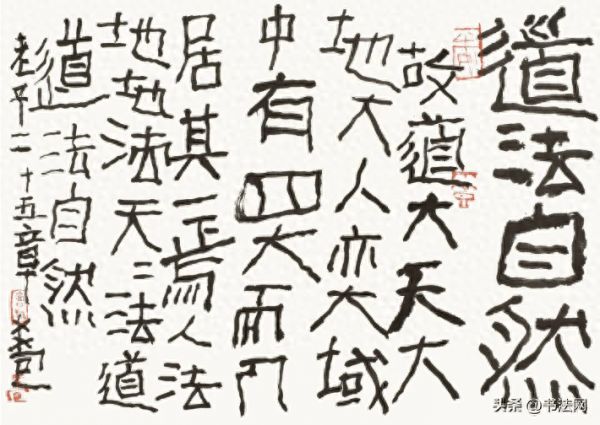 道法自然
故道大天大
地大人亦大域
中有四大而人
居其一焉人法
地地法天〻法道
道法自然
老子二十五章
头条 @书法网